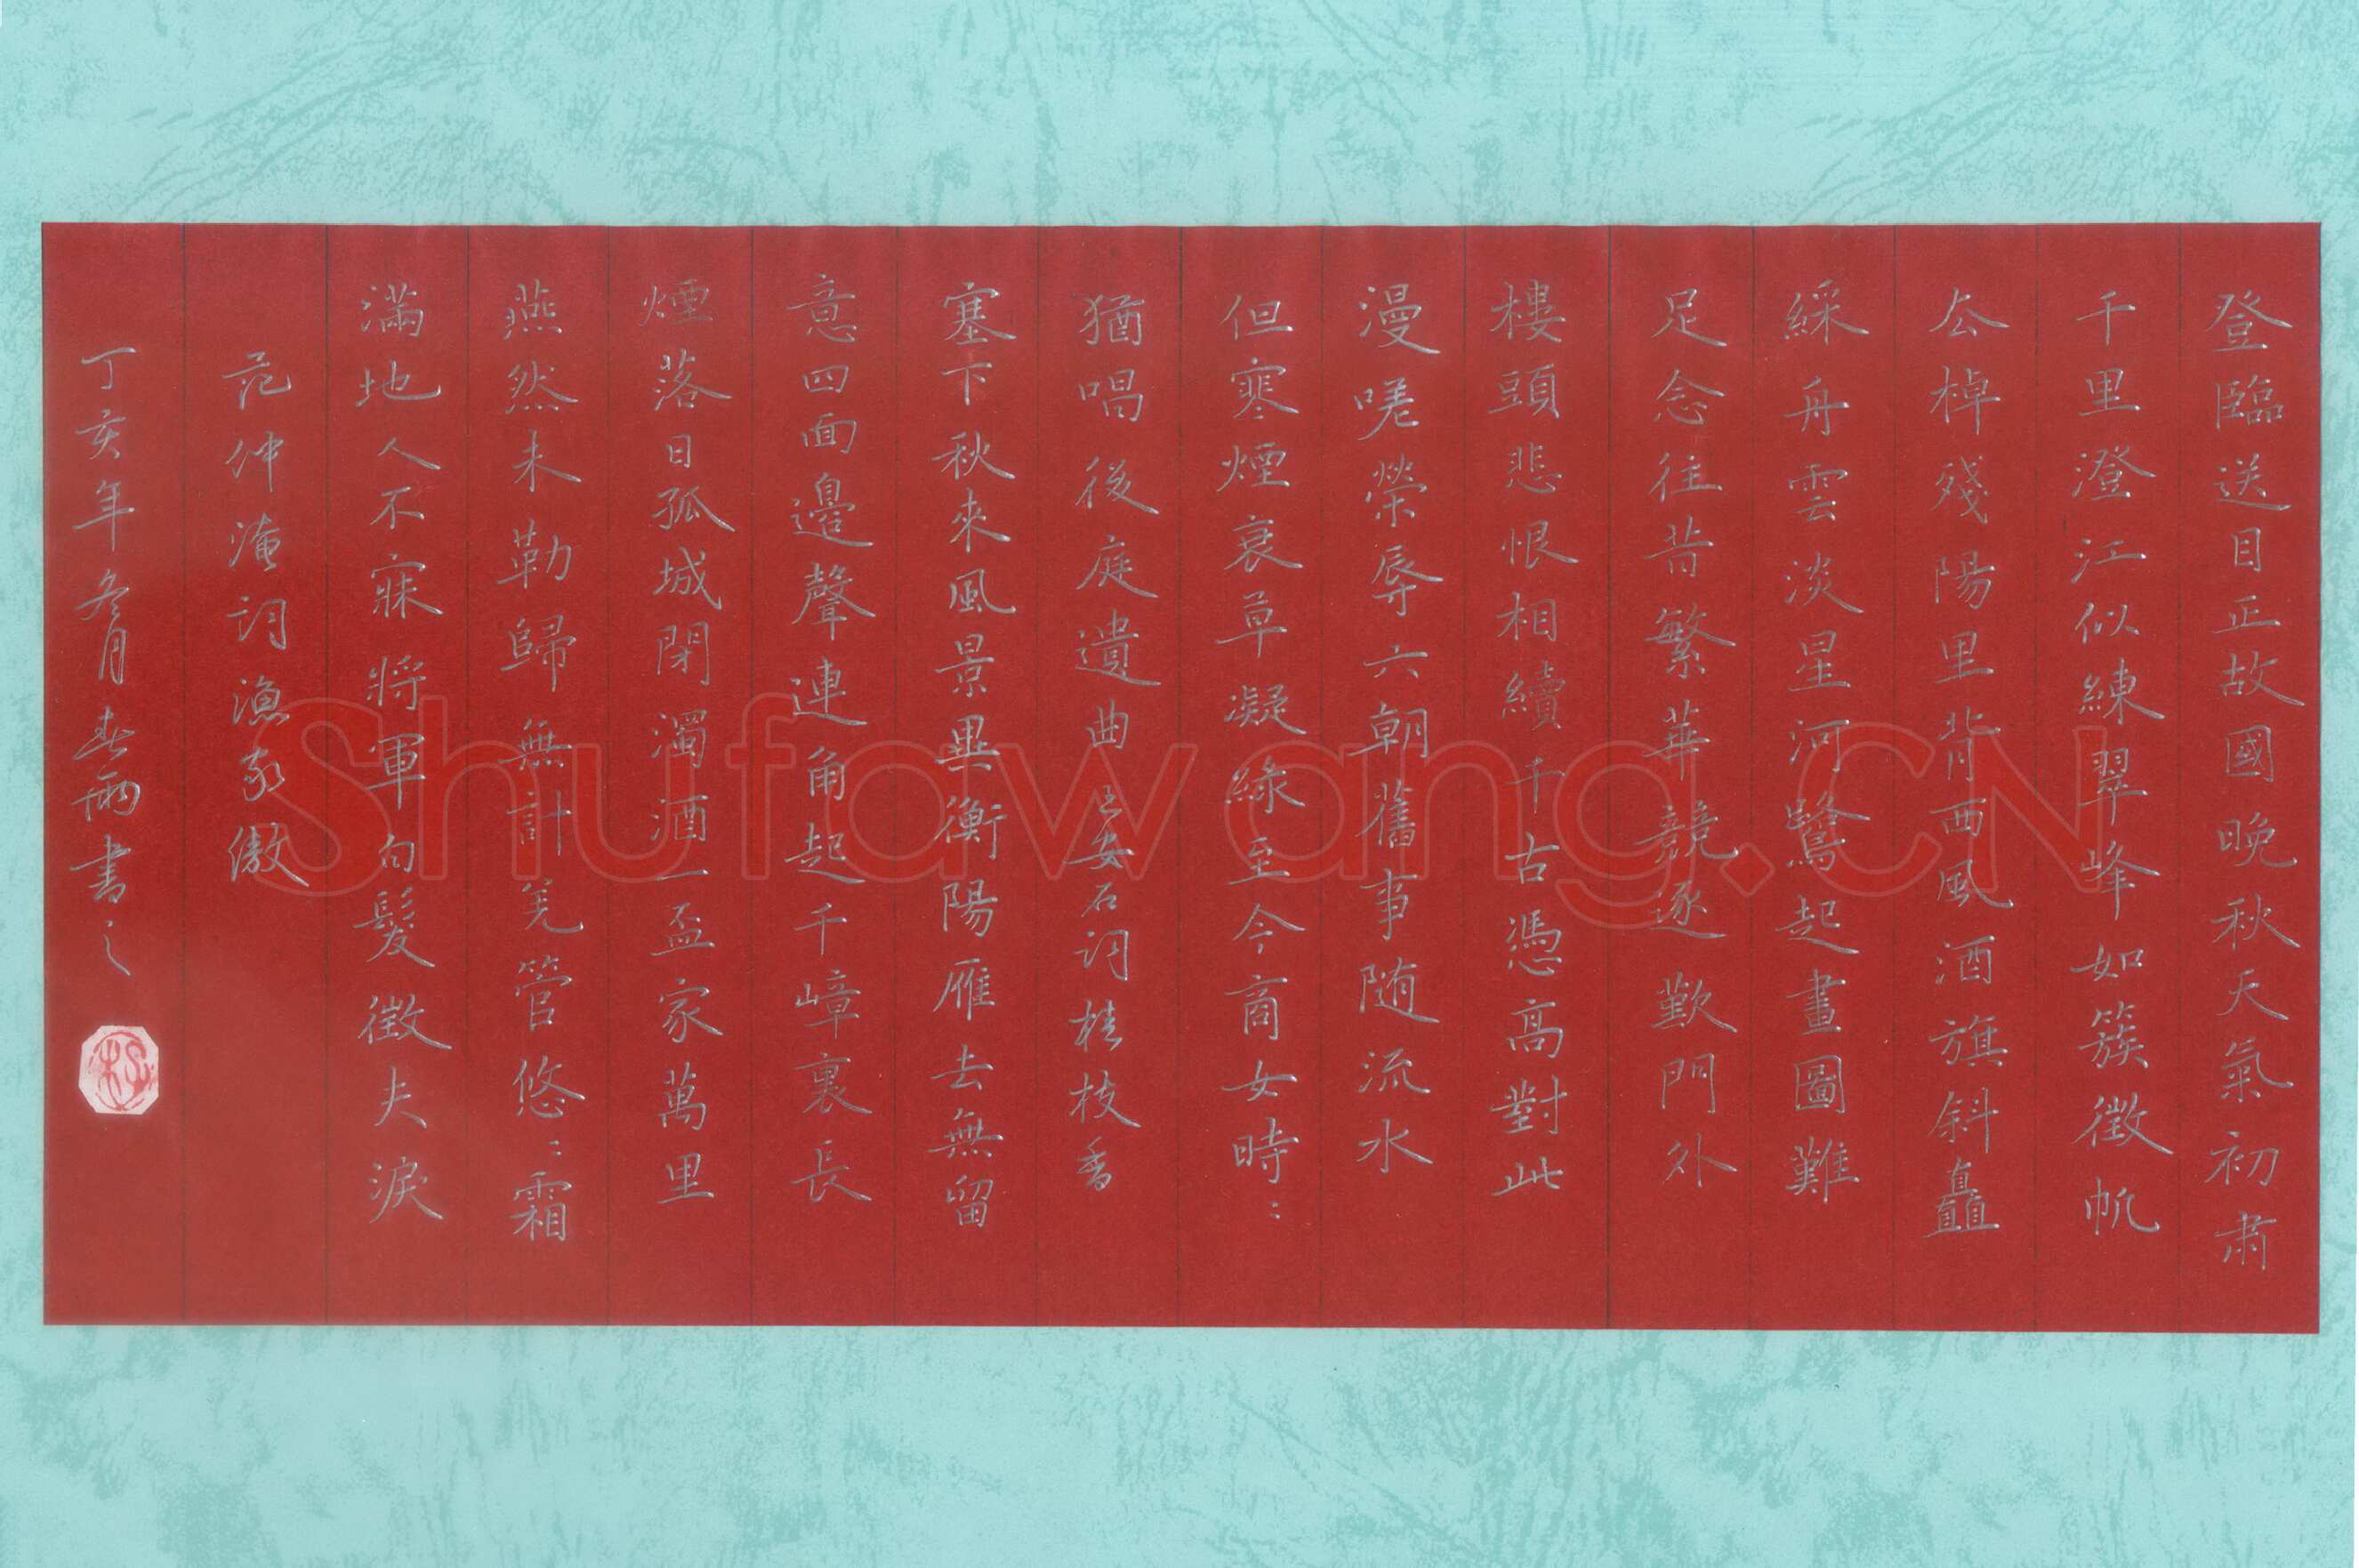 登臨送目正故國晚秋天氣初肅
千里澄江似練翠峰如簇徵帆
去棹殘陽里背西風酒旗斜矗
綵舟雲淡星河鷺起畫圖難
足念往昔繁華競逐歎門外
樓頭悲恨相續千古憑高對此
漫嗟榮辱六朝舊事随流水
但寒煙衰草凝綠至今商女時：
猶唱後庭遺曲 王安石詞桂枝香
塞下秋來風景異衡陽雁去無留
意四面邊聲連角起千嶂裏長
煙落日孤城閉濁酒一盃家萬里
燕然未勒歸無計羌管悠：霜
滿地人不寐將軍白髮徵夫淚
范仲淹詞漁家傲
丁亥年冬月春雨書之
Shufawang.CN